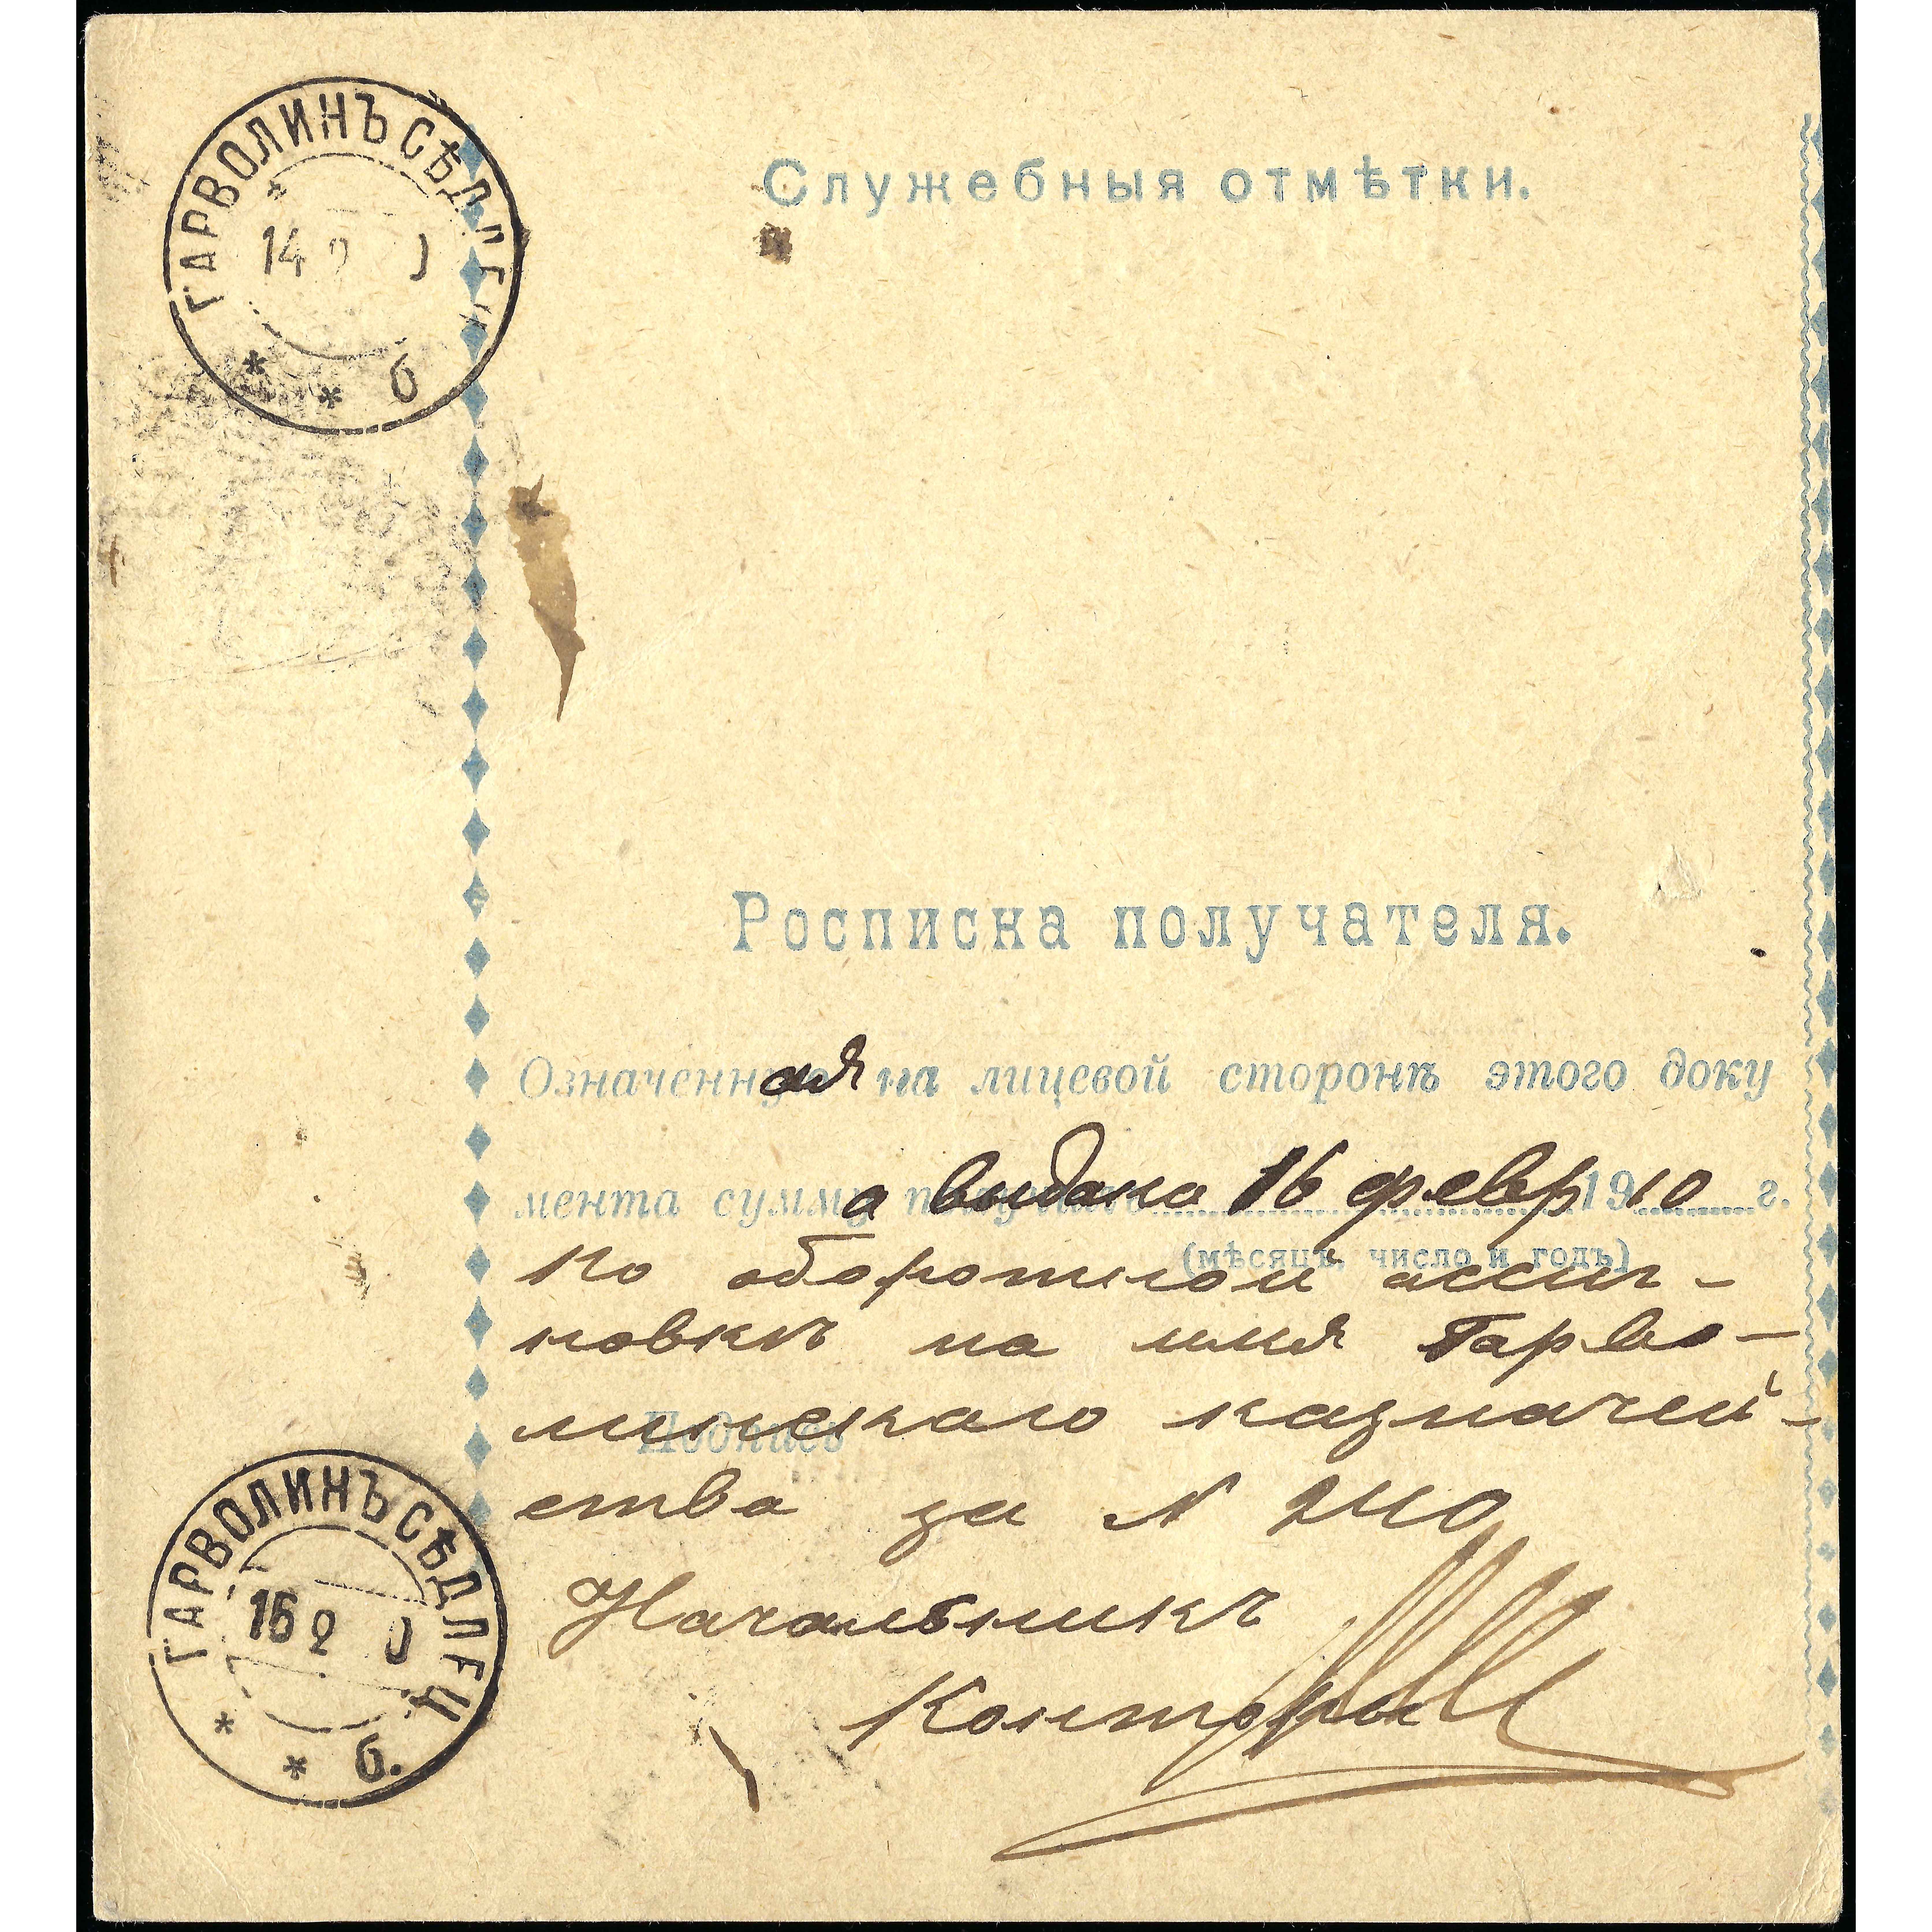 ГАРВОЛИНЪ СѢДЛЕЦ
14
б
Служебныя отмѣтки.
Росписка получателя.
Означенная на лицевой сторонѣ этого доку
мента сумма выдана 16 февр 1910 г.
(мѣсяцъ, число и годъ)
по оборотной ассиг-
новкѣ на имя Гарво-
линскаго казначей-
Подпись
ства за №
Начальникъ
Конторы
ГАРВОЛИНЪ СѢДЛЕЦ
16 2 0
б.